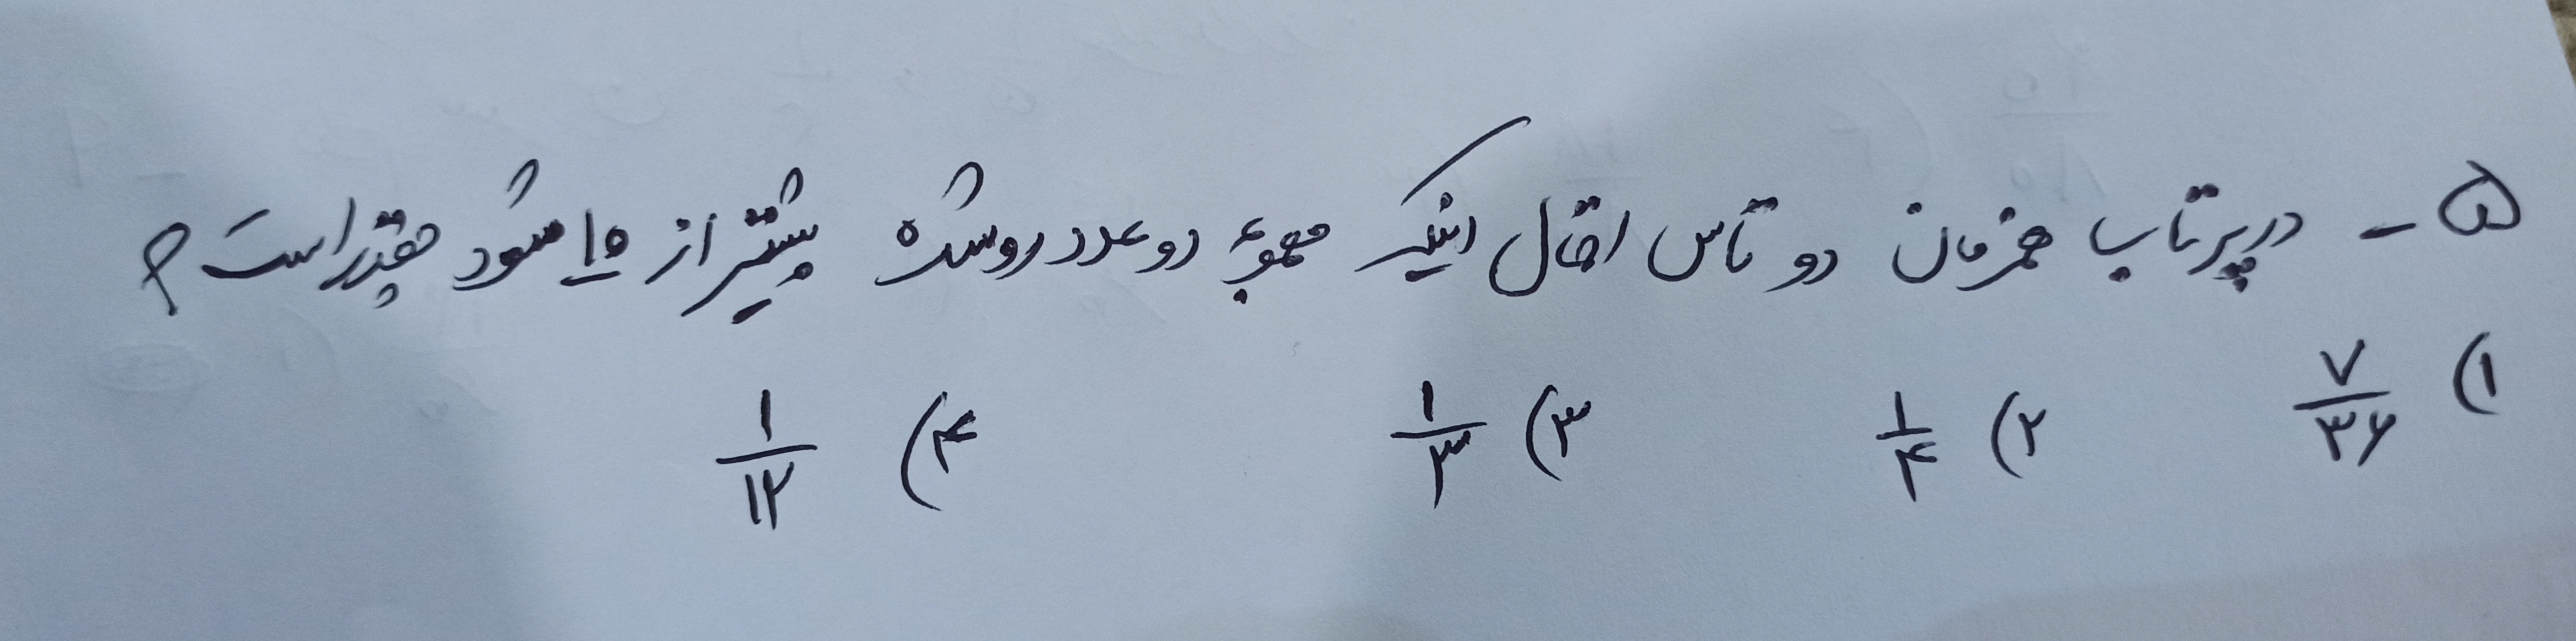 ۵ - در پرتاب همزمان دو تاس احتمال اینکه مجموع دو عدد رو شده بیشتر از ۱۰ شود چقدر است ؟
۱) ۷/۳۶ ۲) ۱/۴ ۳) ۱/۳ ۴) ۱/۱۲